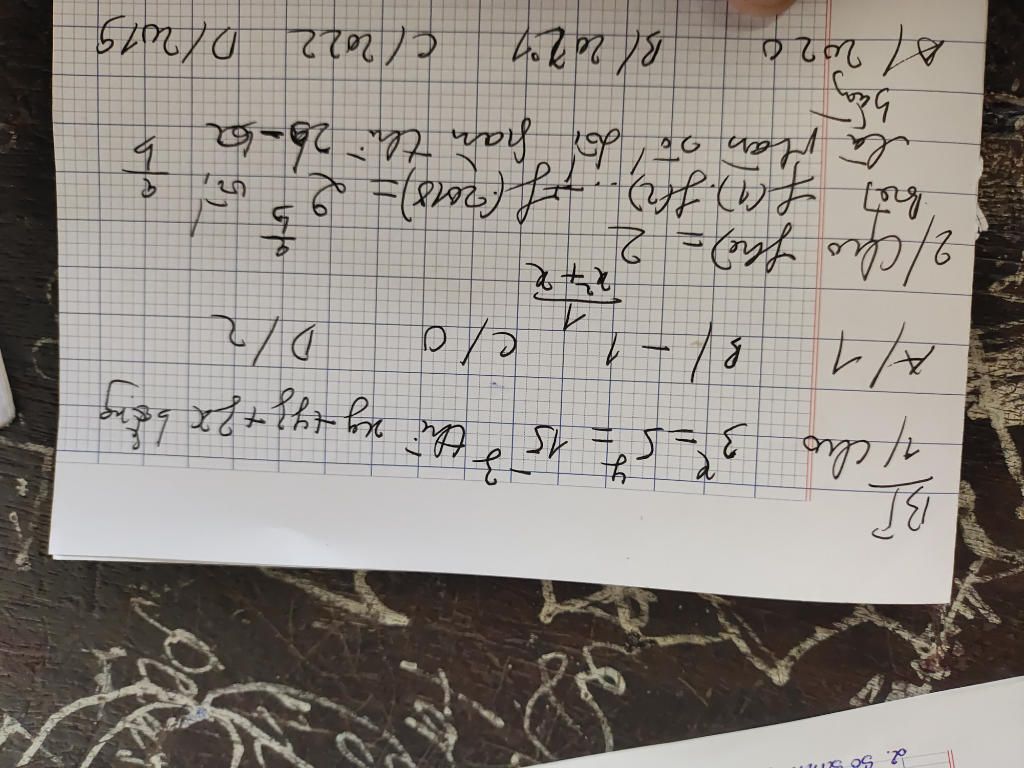 BT
1/ Cho 3^x = 5^y = 15^-z thì xy + yz + zx bằng
A/ 1 B/ -1 C/ 0 D/ 2
1
x² + x
2/ Cho f(x) = 2
a
b
biết f(1).f(2)...f(2018) = 2 với a
b
là phân số tối giản thì 2b - a
bằng
A/ 2020 B/ 2021 C/ 2022 D/ 2019
2. Số